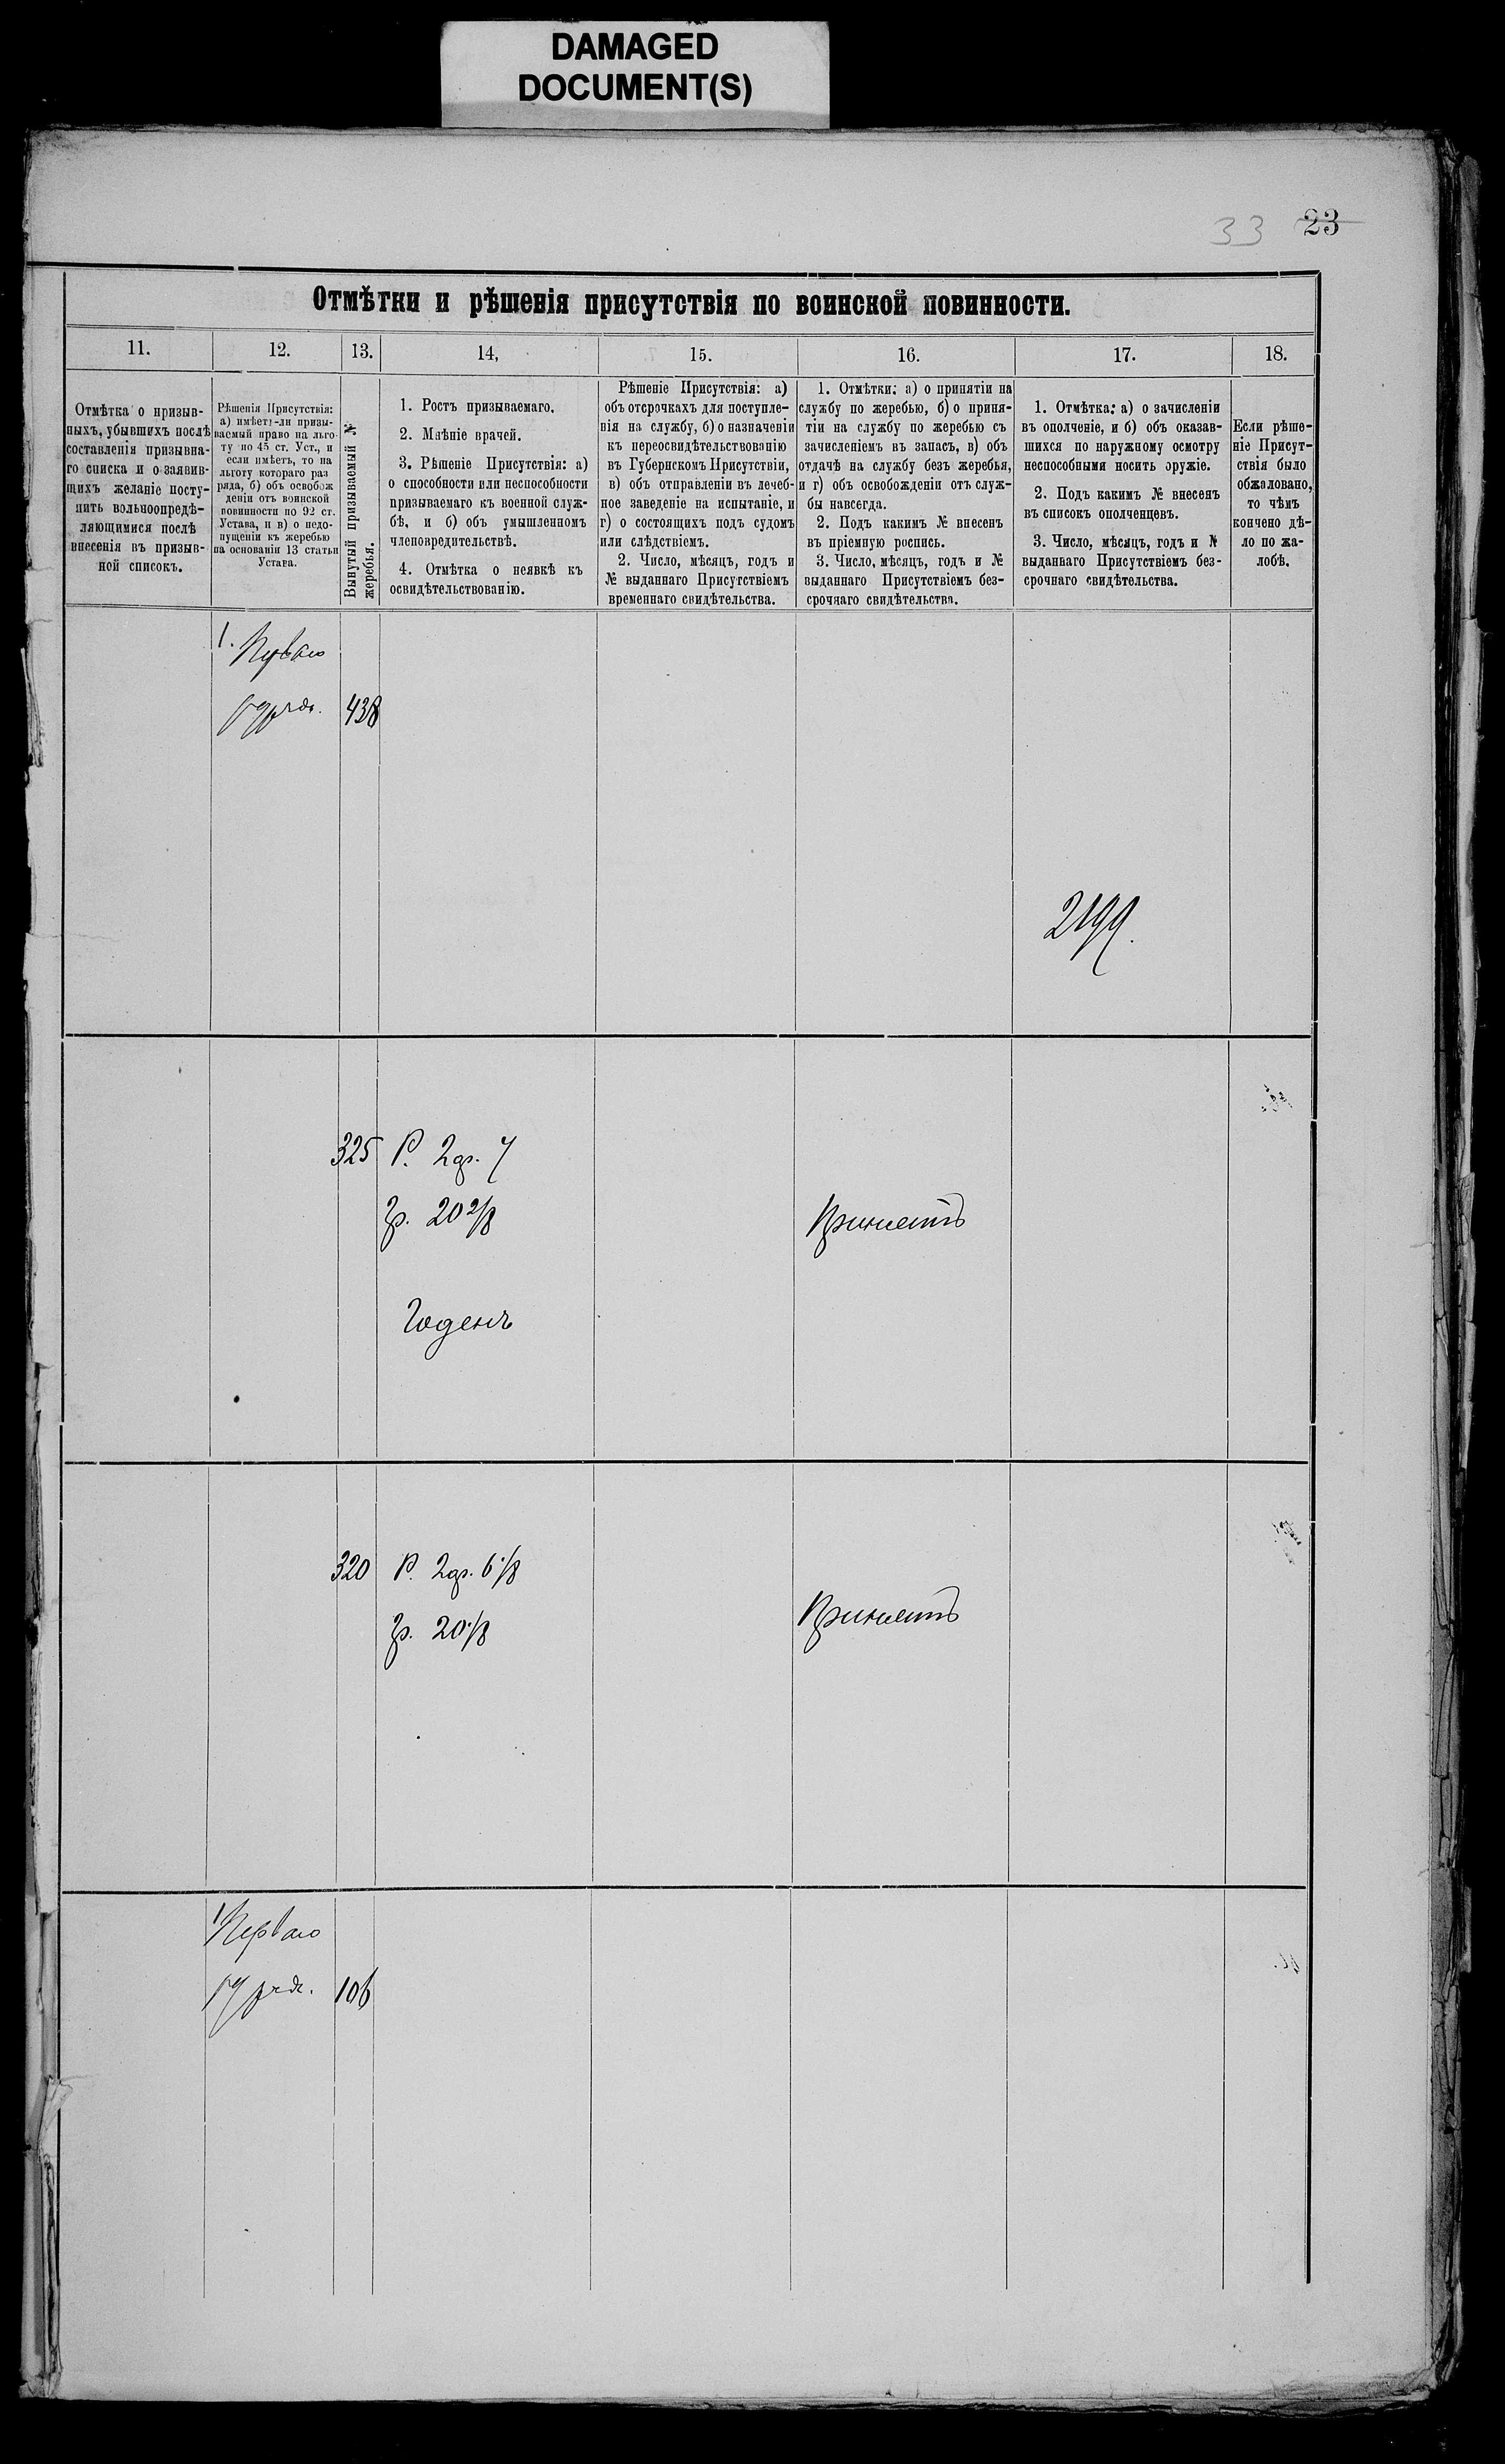 DAMAGED
DOCUMENT(S)
33 23
Отмѣтки и рѣшенія присутствія по воинской повинности.
11.
12.
13.
14,
15.
16.
17.
18.
Отмѣтка о призыв-
ныхъ, убывшихъ послѣ
составленія призывна-
го списка и о заявив-
щихъ желаніе посту-
пить вольноопредѣ-
ляющимися послѣ
внесенія въ призыв-
ной списокъ.
Рѣшенія Присутствія:
а) имѣетъ-ли призы-
ваемый право на льго-
ту по 45 ст. Уст., и
если имѣетъ, то на
льготу котораго раз
ряда, б) объ освобож
деніи отъ воинской
повинности по 92 ст.
Устава, и в) о недо-
пущеніи къ жеребью
на основаніи 13 статьи
Устава.
Вынутый призываемый №
жеребья.
1. Ростъ призываемаго.
2. Мнѣніе врачей.
3. Рѣшеніе Присутствія: а)
о способности или неспособности
призываемаго къ военной служ-
бѣ, и б) объ умышленномъ
членовредительствѣ.
4. Отмѣтка о неявкѣ къ
освидѣтельствованію.
Рѣшеніе Присутствія: а)
объ отсрочкахъ для поступле-
нія на службу, б) о назначеніи
къ переосвидѣтельствованію
въ Губернскомъ Присутствіи,
в) объ отправленіи въ лечеб-
ное заведеніе на испытаніе, и
г) о состоящихъ подъ судомъ
или слѣдствіемъ.
2. Число, мѣсяцъ, годъ и
№ выданнаго Присутствіемъ
временнаго свидѣтельства.
1. Отмѣтки: а) о принятіи на
службу по жеребью, б) о приня-
тіи на службу по жеребью съ
зачисленіемъ въ запасъ, в) объ
отдачѣ на службу безъ жеребья,
и г) объ освобожденіи отъ служ-
бы навсегда.
2. Подъ какимъ № внесенъ
въ пріемную роспись.
3. Число, мѣсяцъ, годъ и №
выданнаго Присутствіемъ без-
срочнаго свидѣтельства.
1. Отмѣтка: а) о зачисленіи
въ ополченіе, и б) объ оказав-
шихся по наружному осмотру
неспособными носить оружіе.
2. Подъ какимъ № внесенъ
въ списокъ ополченцевъ.
3. Число, мѣсяцъ, годъ и №
выданнаго Присутствіемъ без-
срочнаго свидѣтельства.
Если рѣше-
ніе Присут-
ствія было
обжаловано,
то чѣмъ
кончено дѣ-
ло по жа-
лобѣ.
1. Перваго
438
2199.
325 Р. 2 ар. 7
Гр. 20 2/8
Принятъ
Годенъ
320 Р. 2 ар. 6 1/8
Гр. 20 1/8
Принятъ
1 Перваго
106